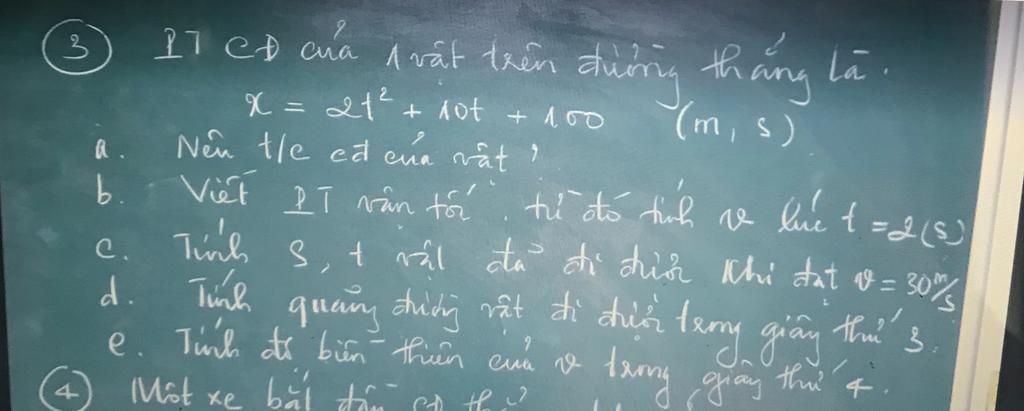 ③ PT CĐ của 1 vật trên đường thẳng là.
x = 2t² + 10t + 100 (m, s)
a. Nêu t/c cđ của vật?
b. Viết PT vận tốc. từ đó tính v lúc t = 2(s)
c. Tính S, t vật đã đi được khi đạt v = 30 m/s
d. Tính quãng đường vật đi được trong giây thứ 3.
e. Tính độ biến thiên của v trong giây thứ 4.
④ Một xe bắt đầu CĐ